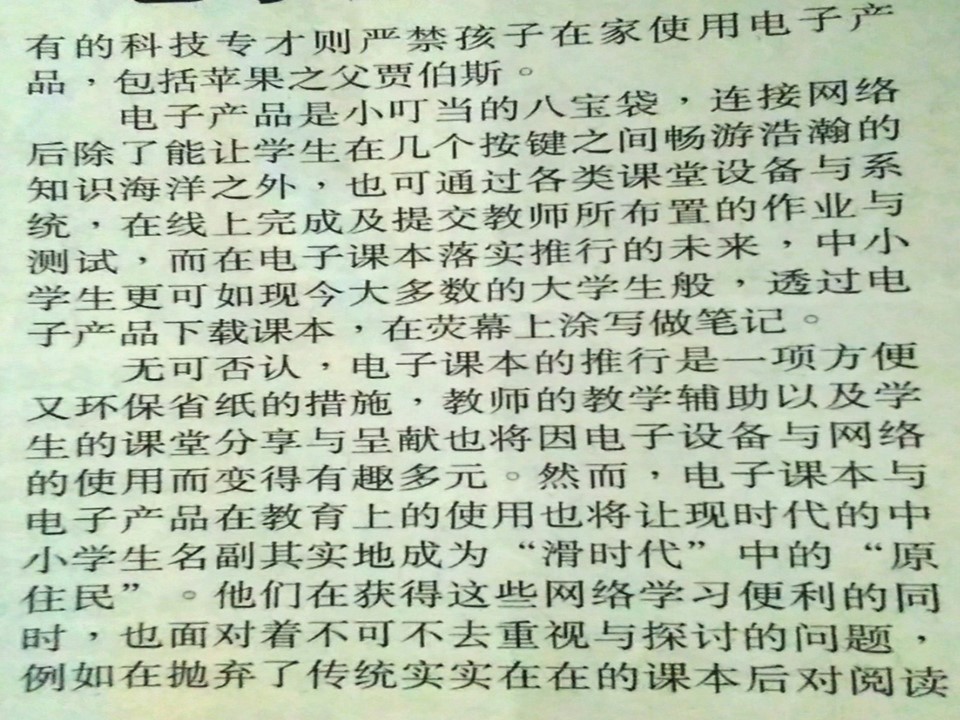 有的科技专才则严禁孩子在家使用电子产
品，包括苹果之父贾伯斯。
电子产品是小叮当的八宝袋，连接网络
后除了能让学生在几个按键之间畅游浩瀚的
知识海洋之外，也可通过各类课堂设备与系
统，在线上完成及提交教师所布置的作业与
测试，而在电子课本落实推行的未来，中小
学生更可如现今大多数的大学生般，透过电
子产品下载课本，在荧幕上涂写做笔记。
无可否认，电子课本的推行是一项方便
又环保省纸的措施，教师的教学辅助以及学
生的课堂分享与呈献也将因电子设备与网络
的使用而变得有趣多元。然而，电子课本与
电子产品在教育上的使用也将让现时代的中
小学生名副其实地成为“滑时代”中的“原
住民”。他们在获得这些网络学习便利的同
时，也面对着不可不去重视与探讨的问题，
例如在抛弃了传统实实在在的课本后对阅读